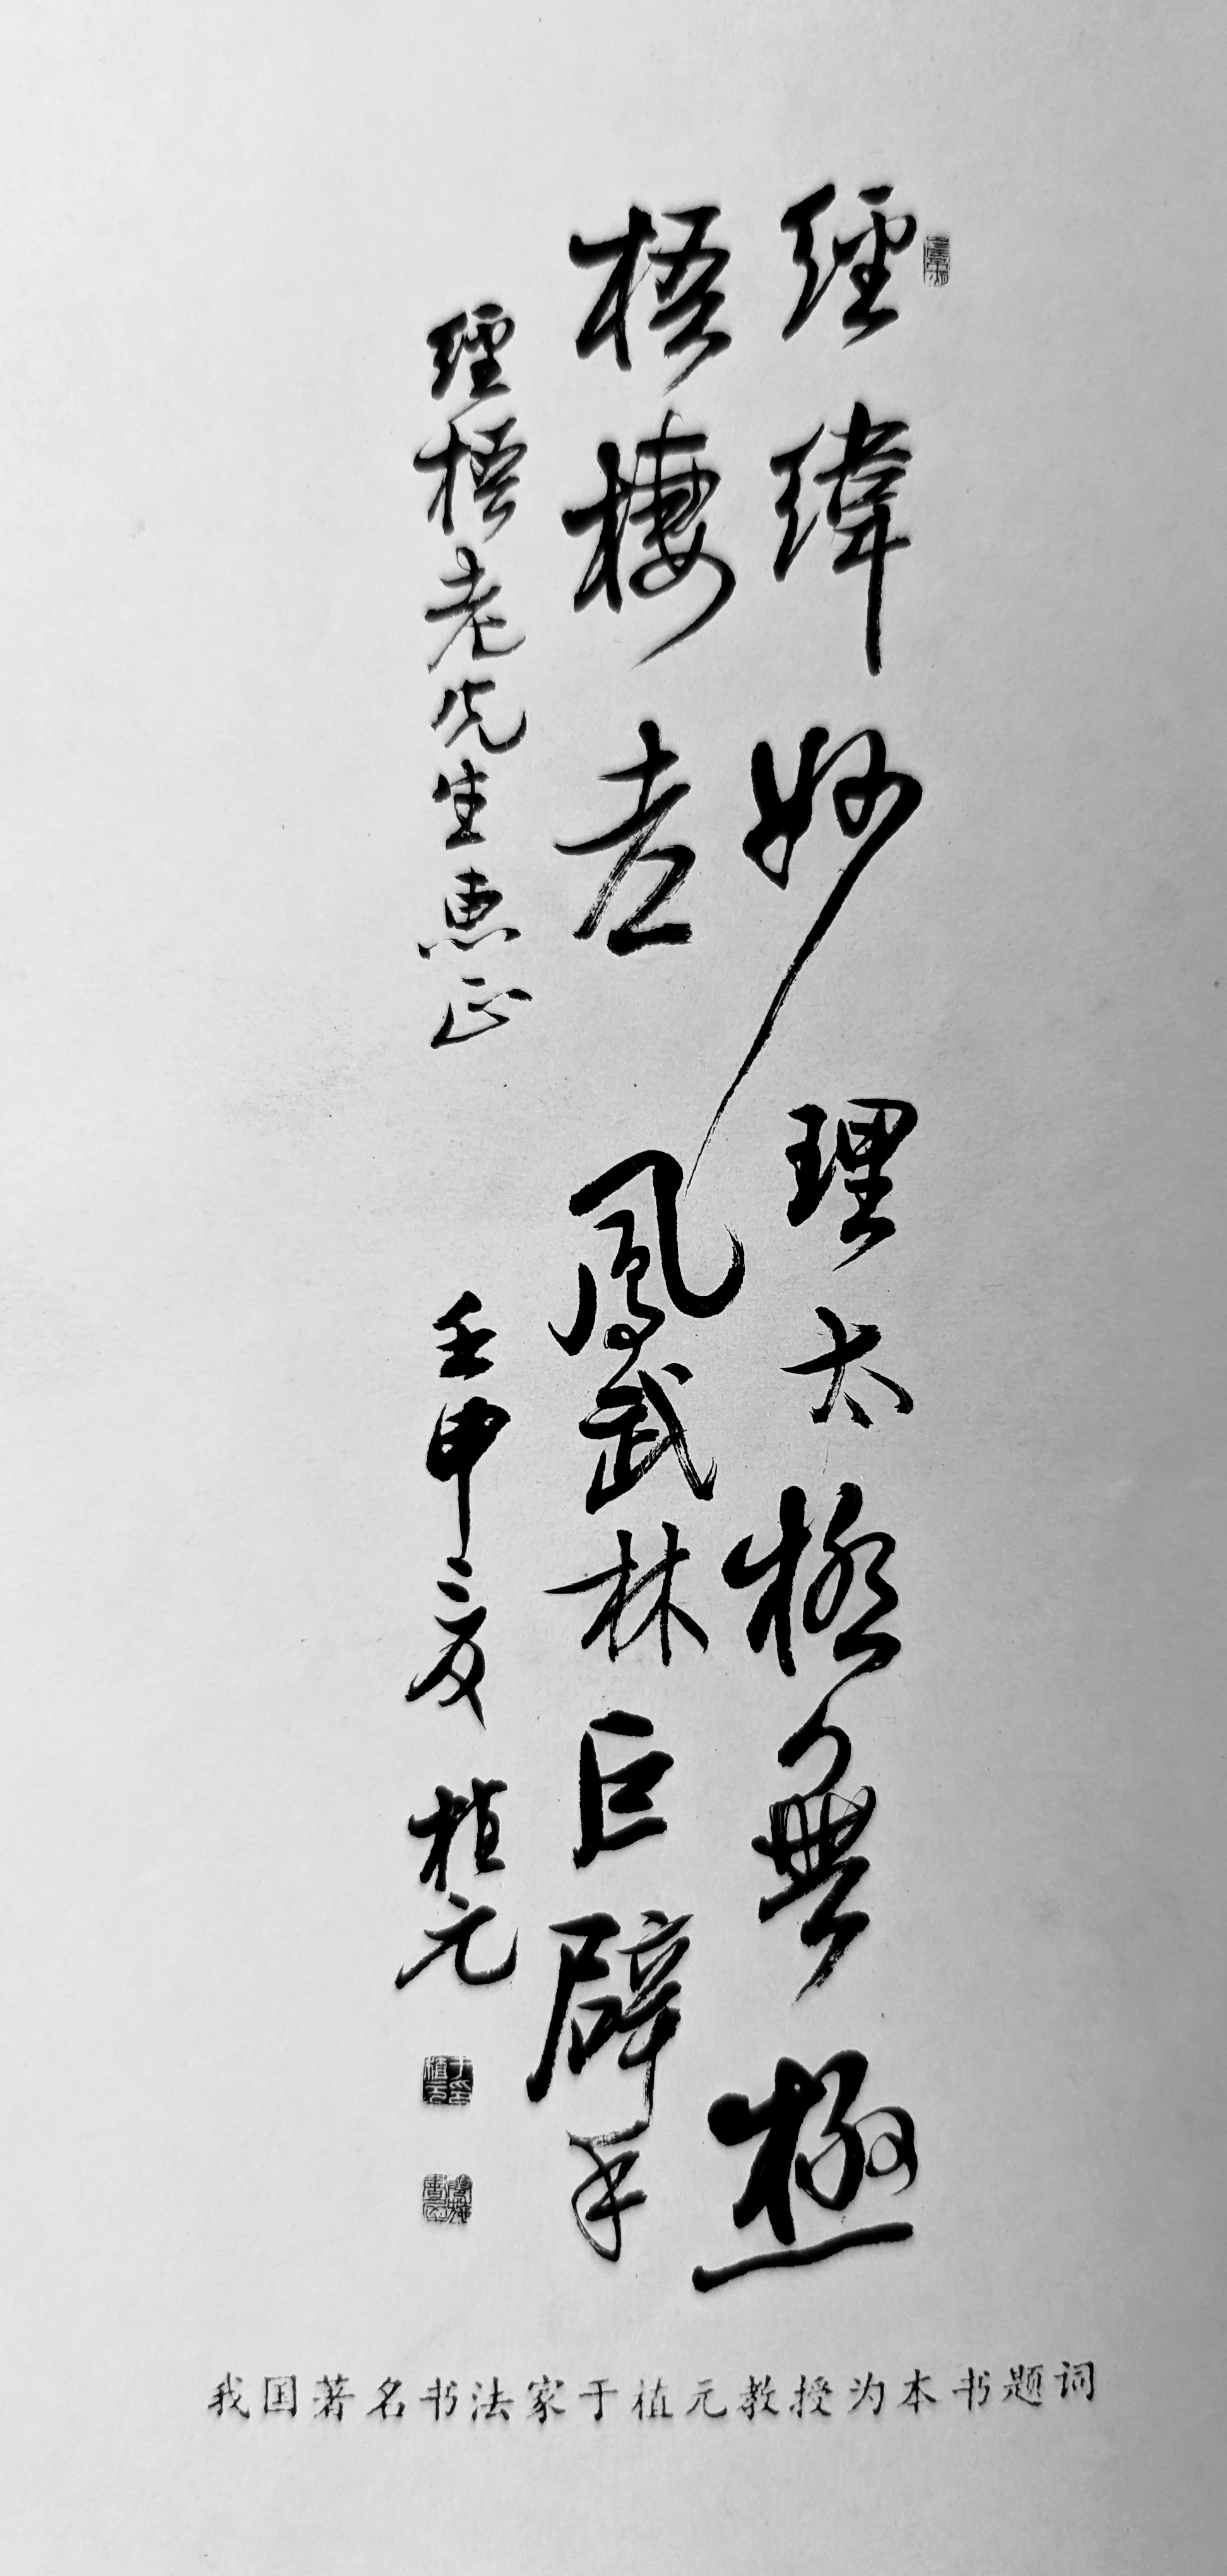 經緯妙理太極無極
梧棲老鳳武林巨擘
經梧老先生惠正
壬申夏 植元
于植元印
我国著名书法家于植元教授为本书题词